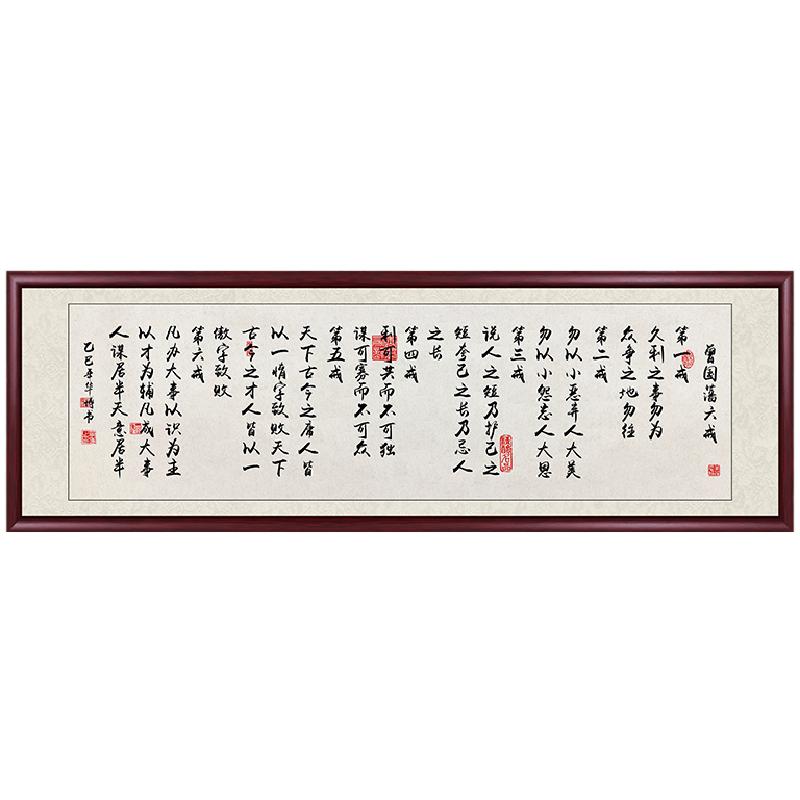 曾国藩六戒
第一戒
久利之事勿为
众争之地勿往
第二戒
勿以小恶弃人大美
勿以小怨忘人大恩
第三戒
说人之短乃护己之
短夸己之长乃忌人
之长
第四戒
利可共而不可独
谋可寡而不可众
第五戒
天下古今之庸人皆
以一惰字致败天下
古今之才人皆以一
傲字致败
第六戒
凡办大事以识为主
以才为辅凡成大事
人谋居半天意居半
乙巳 书